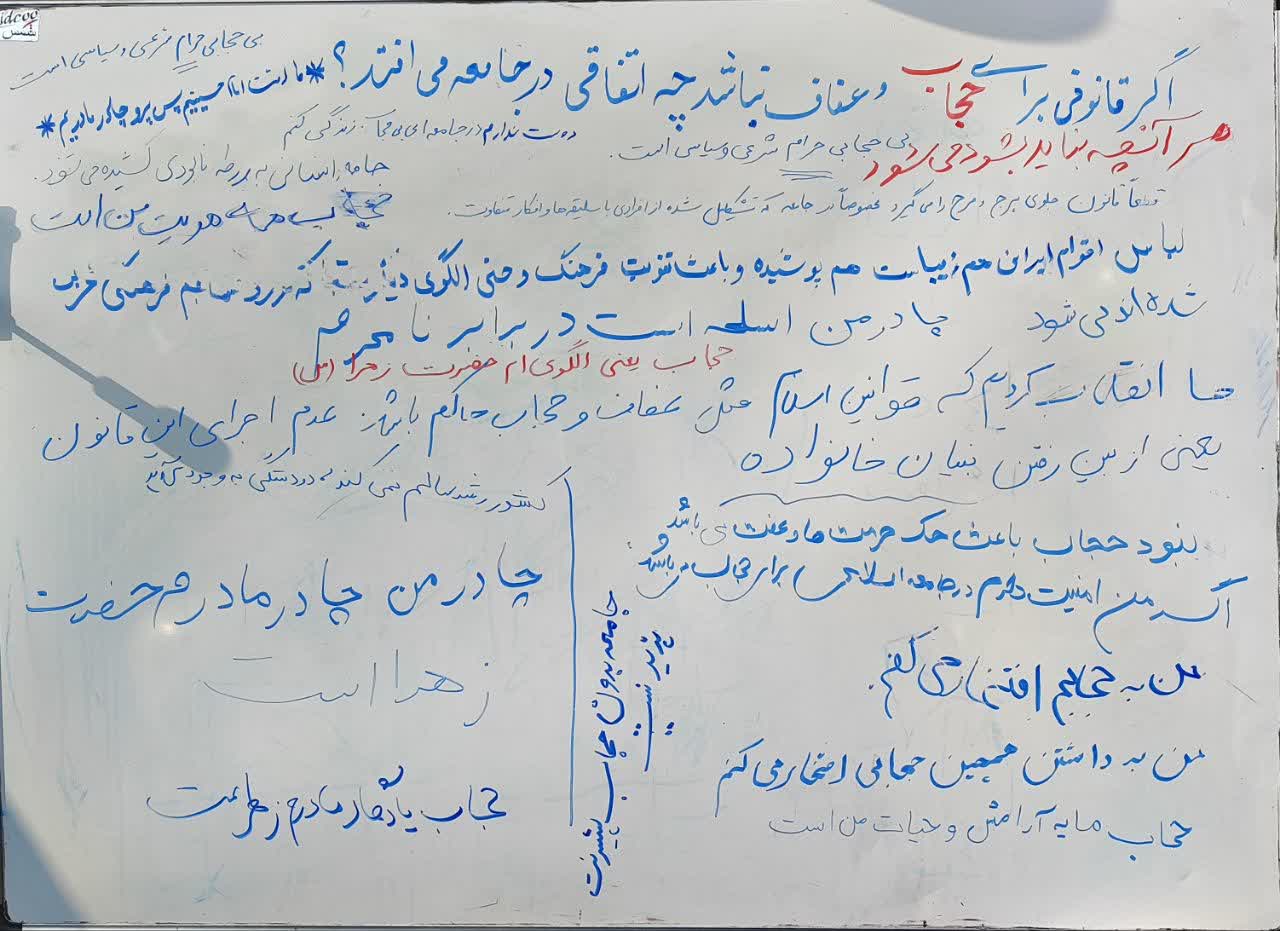 idcoo
شمس
بی حجابی حرام شرعی و سیاسی است
اگر قانونی برای حجاب و عفاف نباشد چه اتفاقی در جامعه می افتد؟
* ما امت امام حسینیم پس پیرو چادر مادریم *
هر آنچه نباید بشود می شود
بی حجابی حرام شرعی و سیاسی است.
دوست ندارم در جامعه ای بی حجاب زندگی کنم
جامعه انسانی به ورطه نابودی کشیده می شود.
قطعاً قانون جلوی هرج و مرج را می گیرد مخصوصاً در جامعه که تشکیل شده از افرادی با سلیقه ها و افکار متفاوت.
حجاب هویت من است
لباس اقوام ایران هم زیباست هم پوشیده و باعث تقویت فرهنگ و حتی الگوی تهاجم فرهنگی غرب
شده اند می شود
چادر من اسلحه است در برابر نامحرم
حجاب یعنی الگوی از حضرت زهرا (س)
ما انقلاب کردیم که قوانین اسلام مثل عفاف و حجاب حاکم باشد. عدم اجرای این قانون
یعنی از بین رفتن بنیان خانواده
کشور رشد سالم نمی کند، دودستگی به وجود می آید
نبود حجاب باعث هتک حرمت ها و عفت می باشد و
اگر من امنیت دارم در جامعه اسلامی برای حجاب می باشد
من به حجابم افتخار می کنم.
من به داشتن همچین حجابی افتخار می کنم
حجاب مایه آرامش و حیات من است
جامعه بدون حجاب پذیر نیست
چادر من چادر مادرم حضرت
زهرا است
حجاب یادگار مادرم زهراست